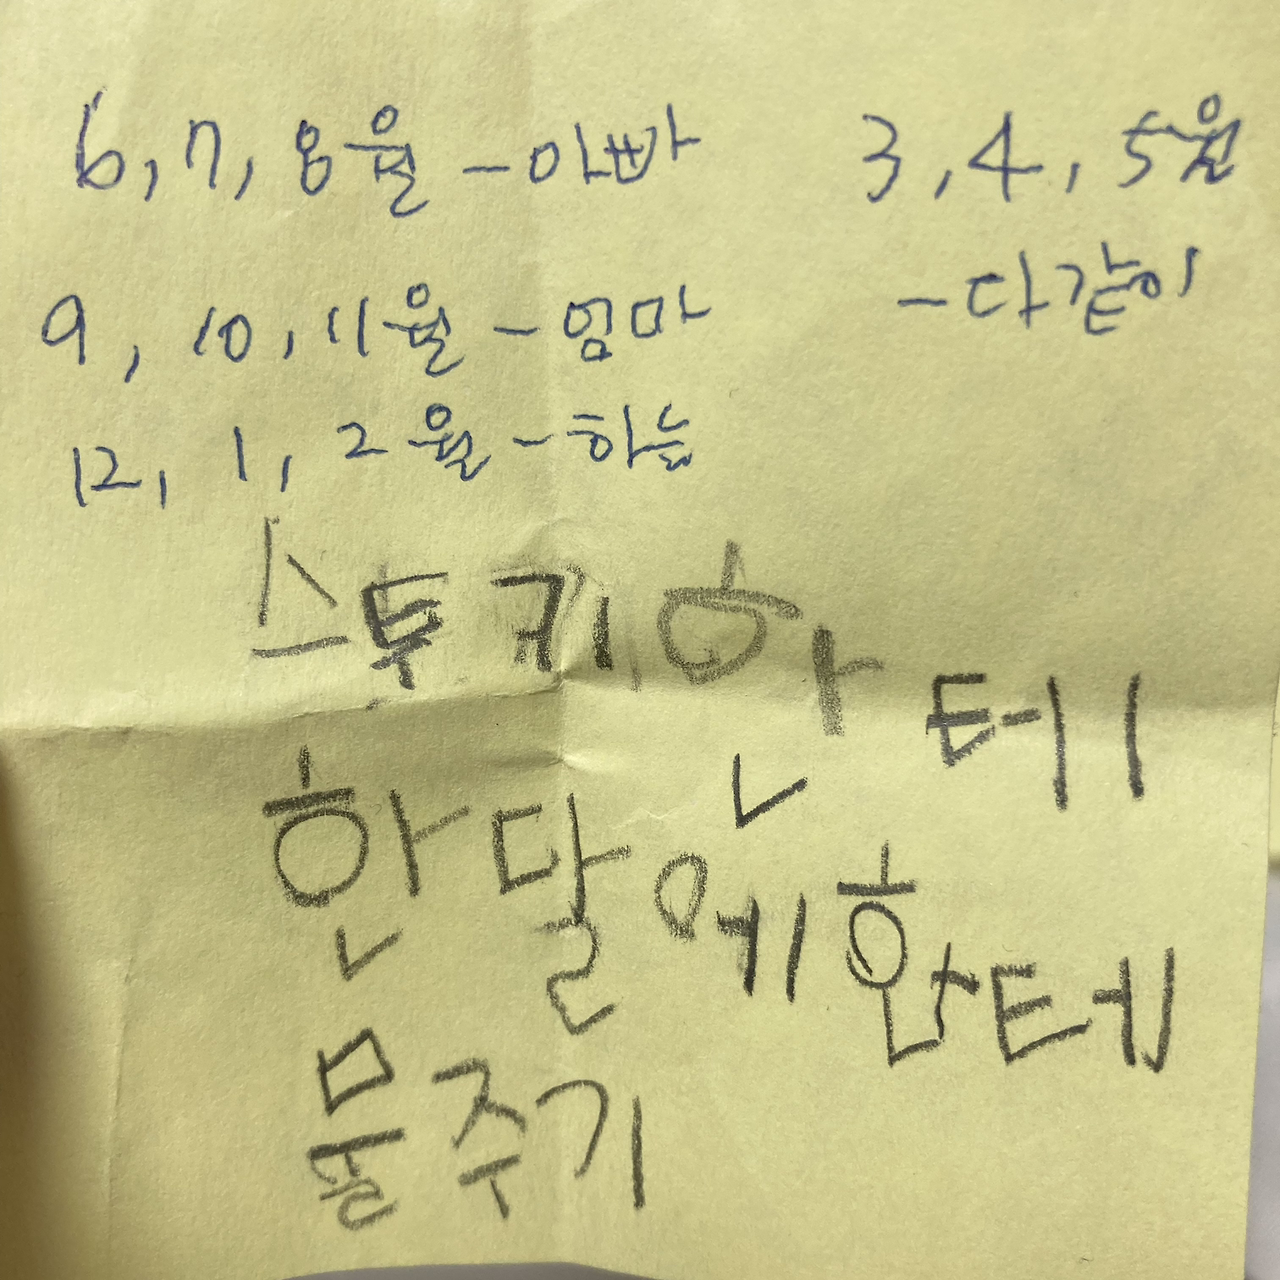 6, 7, 8월 - 아빠
9, 10, 11월 - 엄마
12, 1, 2월 - 하늘
3, 4, 5월
- 다같이
스투키한테
한달에한테
물주기